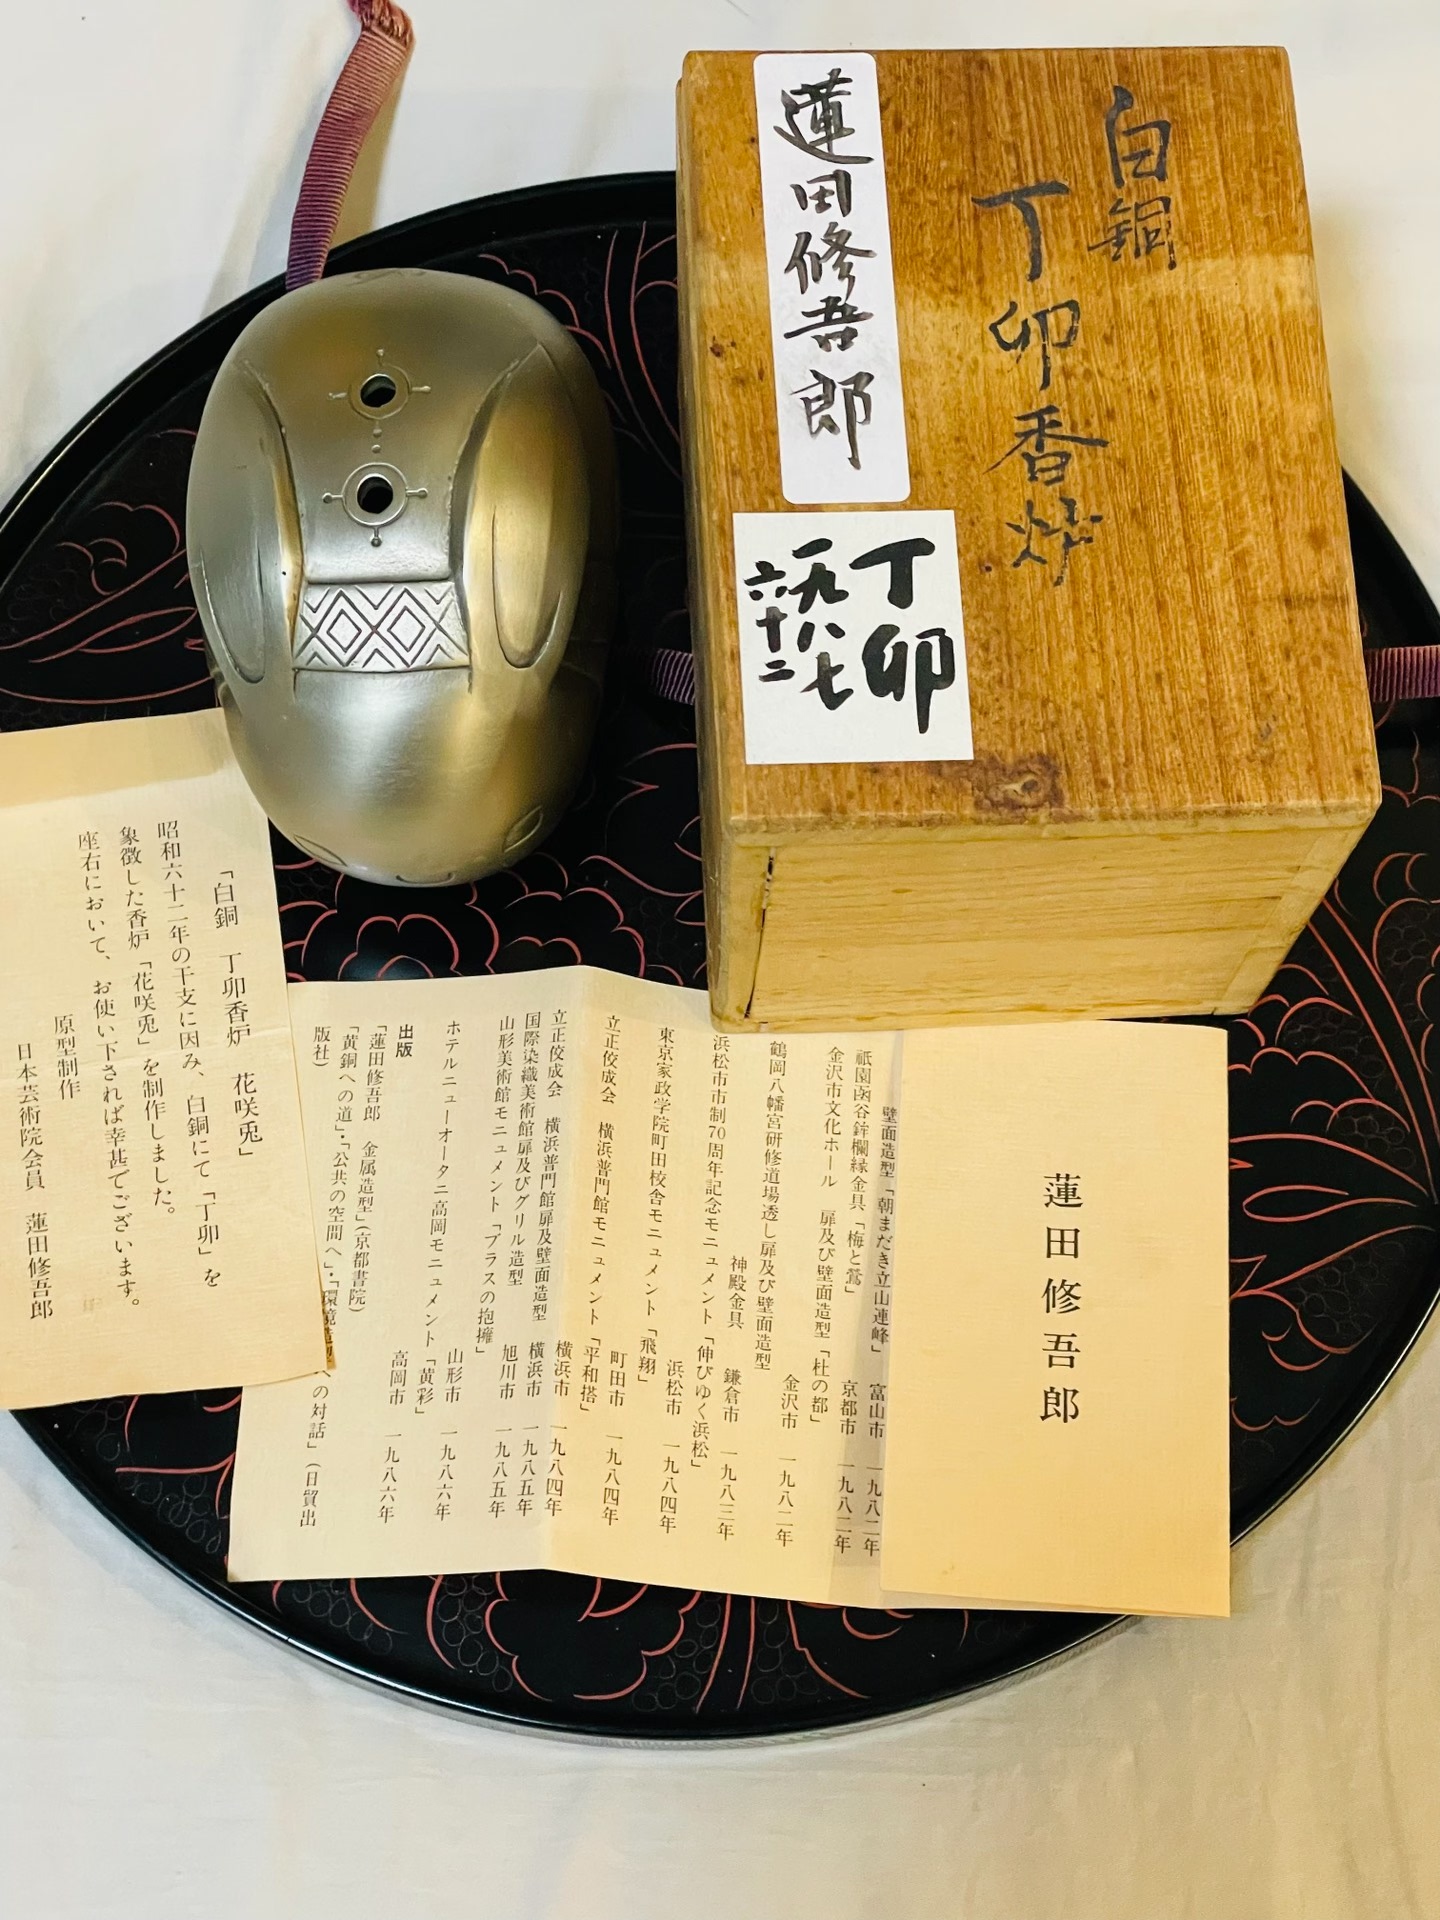 白銅
丁卯香炉
蓮田修吾郎
丁卯
一九八七
六十二
「白銅 丁卯香炉 花咲兎」
昭和六十二年の干支に因み、白銅にて「丁卯」を
象徴した香炉「花咲兎」を制作しました。
座右において、お使い下されば幸甚でございます。
原型制作
日本芸術院会員 蓮田修吾郎
蓮田修吾郎
壁面造型「朝まだき立山連峰」 富山市 一九八二年
祇園函谷鉾欄縁金具「梅と鶯」 京都市 一九八二年
金沢市文化ホール 扉及び壁面造型「杜の都」 金沢市 一九八二年
鶴岡八幡宮研修道場透し扉及び壁面造型
神殿金具 鎌倉市 一九八三年
浜松市市制70周年記念モニュメント「伸びゆく浜松」
浜松市 一九八四年
東京家政学院町田校舎モニュメント「飛翔」
町田市 一九八四年
立正佼成会 横浜普門館モニュメント「平和搭」
横浜市 一九八四年
立正佼成会 横浜普門館扉及び壁面造型 横浜市 一九八五年
国際染織美術館扉及びグリル造型 旭川市 一九八五年
山形美術館モニュメント「ブラスの抱擁」
山形市 一九八六年
ホテルニューオータニ高岡モニュメント「黄彩」
高岡市 一九八六年
出版
「蓮田修吾郎 金属造型」(京都書院)
「黄銅への道」・「公共の空間へ」・「環境造型への対話」(日貿出
版社)